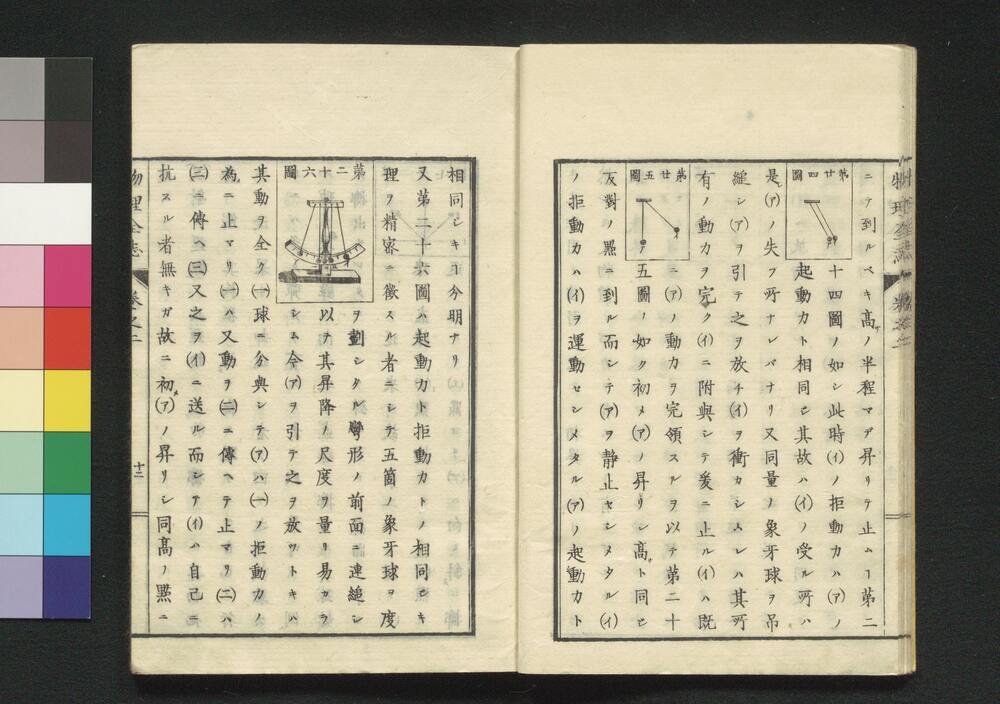 ニテ到ルベキ高ノ半程マデ昇リテ止ムヿ第二
第廿四圖
十四圖ノ如シ此時(イ)ノ拒動力ハ(ア)ノ
起動力ト相同シ其故ハ(イ)ノ受ル所ハ
是(ア)ノ失フ所ナレバナリ又同量ノ象牙球ヲ吊
縋シ(ア)ヲ引テ之ヲ放チ(イ)ヲ衝カシムレハ其所
有ノ動力ヲ完ク(イ)ニ附與シテ爰ニ止ル(イ)ハ既
第廿五圖
ニ(ア)ノ動力ヲ完領スルヲ以テ第二十
五圖ノ如ク初メ(ア)ノ昇リシ高ト同シ
反對ノ㸃ニ到ル而シテ(ア)ヲ静止セシメタル(イ)
ノ拒動力ハ(イ)ヲ運動セシメタル(ア)ノ起動力ト
相同シキヿ分明ナリ
又第二十六圖ハ起動力ト拒動力トノ相同シキ
理ヲ精密ニ徴スル者ニシテ五箇ノ象牙球ヲ度
第二十六圖
ヲ劃シタル彎形ノ前面ニ連縋シ
以テ其昇降ノ尺度ヲ量リ易カラ
シム今(ア)ヲ引テ之ヲ放ツトキハ
其動ヲ全ク(一)球ニ分與シテ(ア)ハ(一)ノ拒動力ノ
為ニ止マリ(一)ハ又動ヲ(二)ニ傳ヘテ止マリ(二)ハ
(三)ニ傳ヘ(三)又之ヲ(イ)ニ送ル而シテ(イ)ハ自己ニ
抗スル者無キガ故ニ初メ(ア)ノ昇リシ同高ノ㸃ニ
物理全志
卷之二
十二